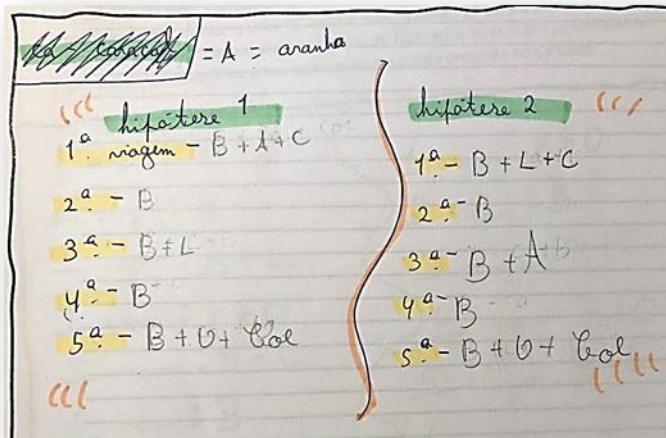 = A = aranha
hipótese 1
1ª viagem - B + A + C
2ª - B
3ª - B + L
4ª - B
5ª - B + O + Col
hipótese 2
1ª - B + L + C
2ª - B
3ª - B + A
4ª - B
5ª - B + O + Col